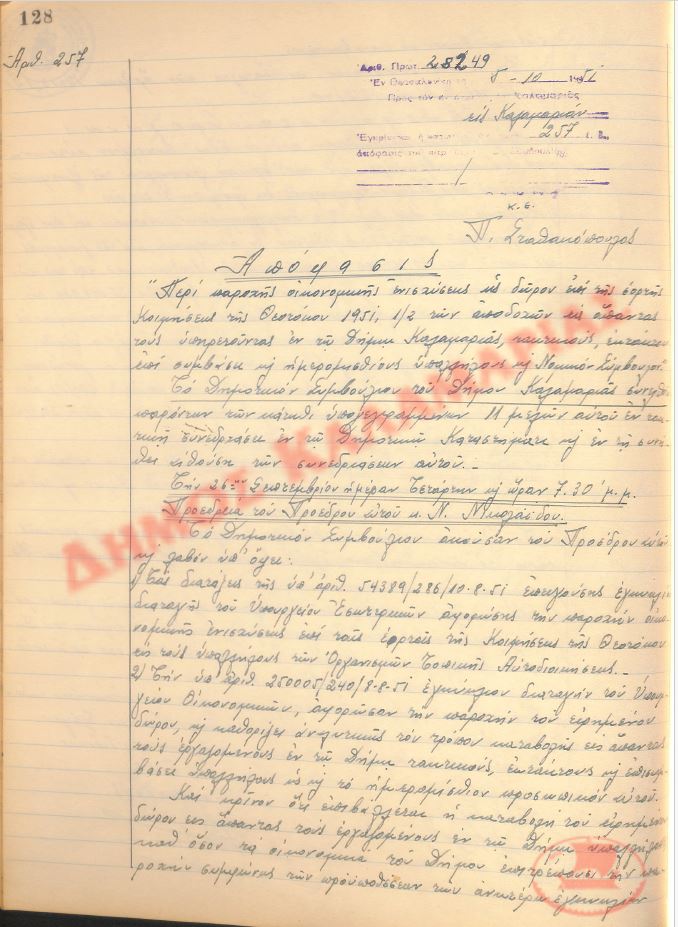 128
Αριθ. 257
Αριθ. Πρωτ. 28249
Ἐν Θεσσαλονίκῃ 5-10-1951
Πρὸς τὸν Καλαμαριᾶς
εἰς Καλαμαριὰν
Ἐγκρίνεται ἡ 257
Κ.Ε.
Π. Σταθακόπουλος
Ἀπόφασις
"Περὶ παροχῆς οἰκονομικῆς ἐνισχύσεως ὡς δῶρον ἐπὶ τῆς ἑορτῆς
Κοιμήσεως τῆς Θεοτόκου 1951, 1/2 τῶν ἀποδοχῶν εἰς ἅπαντας
τοὺς ὑπηρετοῦντας ἐν τῷ Δήμῳ Καλαμαριᾶς, τακτικούς, ἐκτάκτους
ἐπὶ συμβάσει κ ἡμερομισθίους ὑπαλλήλους κ Νομικὸν Σύμβουλον"
Τὸ Δημοτικὸν Συμβούλιον τοῦ Δήμου Καλαμαριᾶς συνελθὸν
παρόντων τῶν κάτωθι ὑπογεγραμμένων 11 μελῶν αὐτοῦ ἐν τακ-
τικῇ συνεδριάσει ἐν τῷ Δημοτικῷ Καταστήματι κ ἐν τῇ συνή-
θει αἰθούσῃ τῶν συνεδριάσεων αὐτοῦ.-
Τὴν 26ην Σεπτεμβρίου ἡμέραν Τετάρτην κ ὥραν 7.30' μ.μ.
Προεδρείᾳ τοῦ Προέδρου αὐτοῦ κ. Ν. Νικολαΐδου.
Τὸ Δημοτικὸν Συμβούλιον ἀκοῦσαν τοῦ Προέδρου αὐτοῦ
κ λαβὸν ὑπ' ὄψει:
1) Τὰς διατάξεις τῆς ὑπ' ἀριθ. 54389/286/10-8-51 ἐπειγούσης ἐγκυκλίου
διαταγῆς τοῦ Ὑπουργείου Ἐσωτερικῶν ἀφορώσης τὴν παροχὴν οἰκο-
νομικῆς ἐνισχύσεως ἐπὶ ταῖς ἑορταῖς τῆς Κοιμήσεως τῆς Θεοτόκου
εἰς τοὺς ὑπαλλήλους τῶν Ὀργανισμῶν Τοπικῆς Αὐτοδιοικήσεως.-
2) Τὴν ὑπ' ἀριθ. 250005/240/8-8-51 ἐγκύκλιον διαταγὴν τοῦ Ὑπουρ-
γείου Οἰκονομικῶν, ἀφορῶσαν τὴν παροχὴν τοῦ εἰρημένου
δώρου, κ καθορίζει ἀναλυτικῶς τὸν τρόπον καταβολῆς εἰς ἅπαντας
τοὺς ἐργαζομένους ἐν τῷ Δήμῳ τακτικούς, ἐκτάκτους κ ἐπὶ συμ-
βάσει ὑπαλλήλους ὡς κ τὸ ἡμερομίσθιον προσωπικὸν αὐτοῦ.
Καὶ κρῖνον ὅτι ἐπιβάλλεται ἡ καταβολὴ τοῦ εἰρημένου
δώρου εἰς ἅπαντας τοὺς ἐργαζομένους ἐν τῷ Δήμῳ ὑπαλλήλους
καθ' ὅσον τὰ οἰκονομικὰ τοῦ Δήμου ἐπιτρέπουσι τὴν πα-
ροχὴν συμφώνως τῶν προϋποθέσεων τῶν ἀνωτέρω ἐγκυκλίων
ΔΗΜΟΣ ΚΑΛΑΜΑΡΙΑΣ